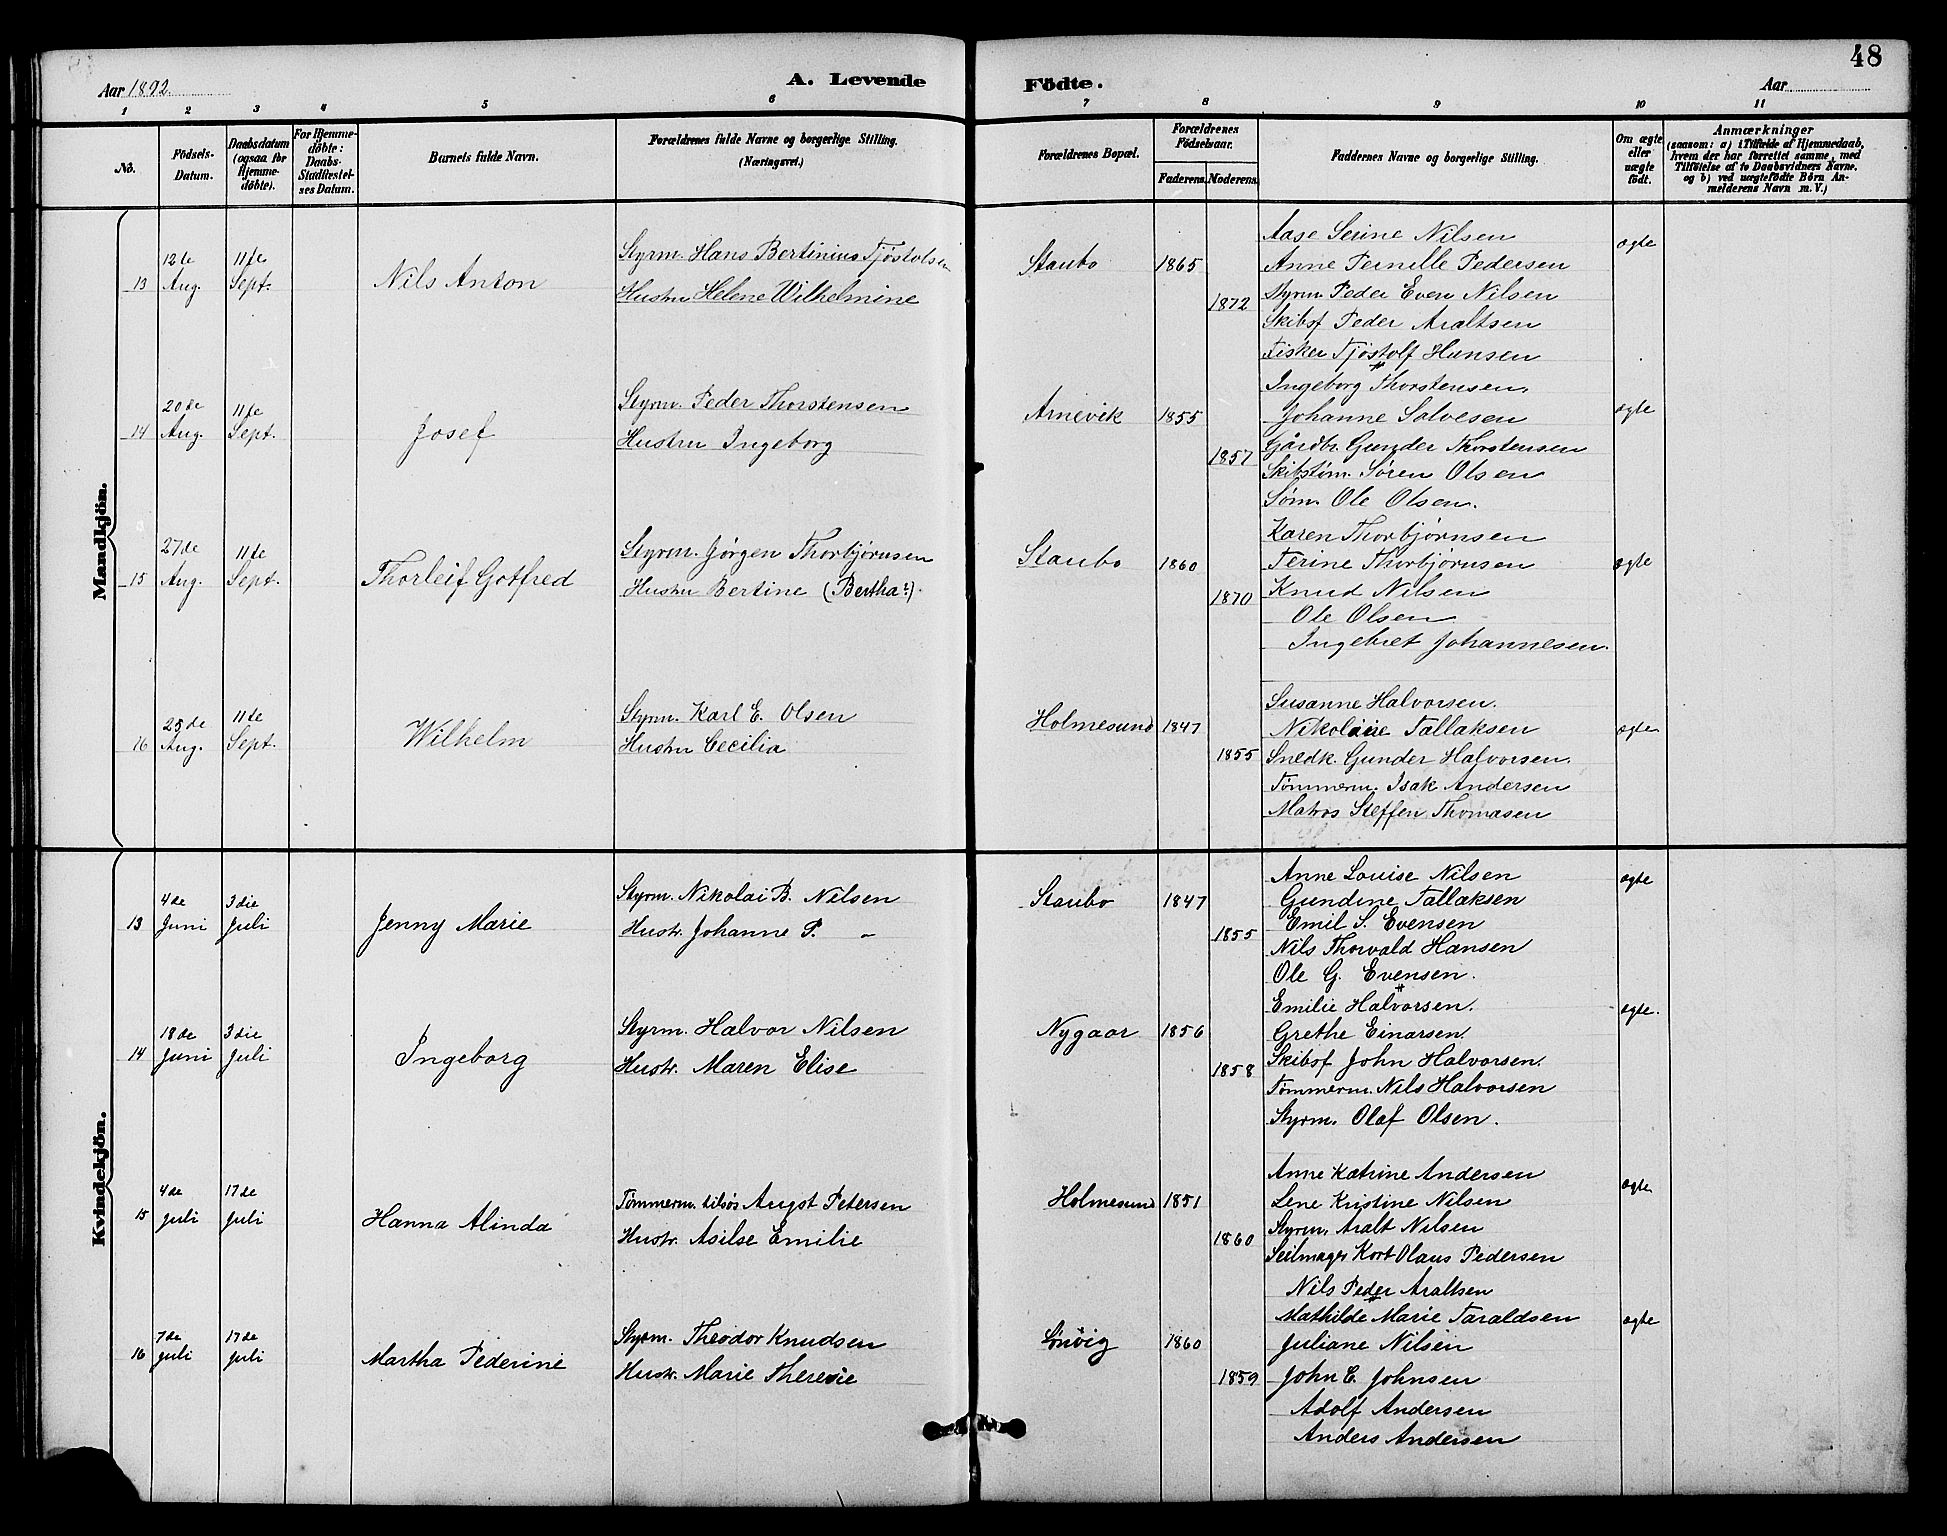 48
Aar 1892
A. Levende Födte.
Aar
1 2 3 4 5 6 7 8 9 10 11
No.
Fødsels-Datum.
Daabsdatum (ogsaa for Hjemmedöbte).
For Hjemmedöbte: Daabs-Stadfæstelses Datum.
Barnets fulde Navn.
Forældrenes fulde Navne og borgerlige Stilling. (Næringsvei.)
Forældrenes Bopæl.
Forældrenes Födselsaar.
Faderens. Moderens.
Faddernes Navne og borgerlige Stilling.
Om ægte eller uægte födt.
Anmærkninger
(saasom: a) i Tilfælde af Hjemmedaab, hvem der har forrettet samme, med Tilföielse af to Daabsvidners Navne, og b) ved uægtefödte Börn Anmelderens Navn m. V.)
Mandkjön.
13 12te Aug. 11te Sept. Nils Anton
Styrm. Hans Bertinius Tjøstolsen
Hustru Helene Wilhelmine
Staubo 1865 1872
Aase Serine Nilsen
Anne Pernille Pedersen
Styrm. Peder Even Nilsen
Skibsf Peder Araltsen
Fisker Tjøstolf Hansen
ægte
14 20de Aug. 11te Sept. Josef
Styrm. Peder Thorstensen
Hustru Ingeborg
Arnevik 1855 1857
Ingeborg Thorstensen.
Johanne Salvesen
Gårdbr. Gunder Thorstensen
Skibstøm. Søren Olsen
Søm. Ole Olsen.
ægte
15 27de Aug. 11te Sept. Thorleif Gotfred
Styrm. Jørgen Thorbjørnsen
Hustru Bertine (Bertha?).
Staubo 1860 1870
Karen Thorbjørnsen
Terine Thorbjørnsen
Knud Nilsen
Ole Olsen
Ingebret Johannesen.
ægte
16 25de Aug. 11te Sept. Wilhelm
Styrm. Karl E. Olsen
Hustru Cecilia
Holmesund 1847 1855
Susanne Halvorsen.
Nikolaie Tallaksen
Snedk. Gunder Halvorsen.
Tømmerm. Isak Andersen
Matros Steffen Thomasen
ægte
Kvindekjön.
13 4de Juni 3die Juli Jenny Marie
Styrm. Nikolai B. Nilsen
Hustr. Johanne P. —
Staubo 1847 1855
Anne Louise Nilsen
Gundine Tallaksen
Emil S. Evensen
Nils Thorvald Hansen
Ole G. Evensen.
ægte
14 18de Juni 3die Juli Ingeborg
Styrm. Halvor Nilsen
Hustr. Maren Elise
Nygaar 1856 1858
Emilie Halvorsen.
Grethe Einarsen.
Skibsf John Halvorsen.
Tømmerm. Nils Halvorsen
Styrm. Olaf Olsen.
ægte.
15 4de Juli 17de Juli Hanna Alinda
Tømmerm. tilsøs Augst Petersen
Hustr. Asilse Emilie
Holmesund 1851 1860
Anne Katrine Andersen
Lene Kristine Nilsen
Styrm. Aralt Nilsen
Seilmager Kort Olaus Pedersen
Nils Peder Araltsen
ægte
16 7de Juli 17de Juli Martha Pederine
Styrm. Theodor Knudsen
Hustr. Marie Theresie
1860 1859
Mathilde Marie Taraldsen
Juliane Nilsen
John E. Johnsen
Adolf Andersen
Anders Andersen
ægte